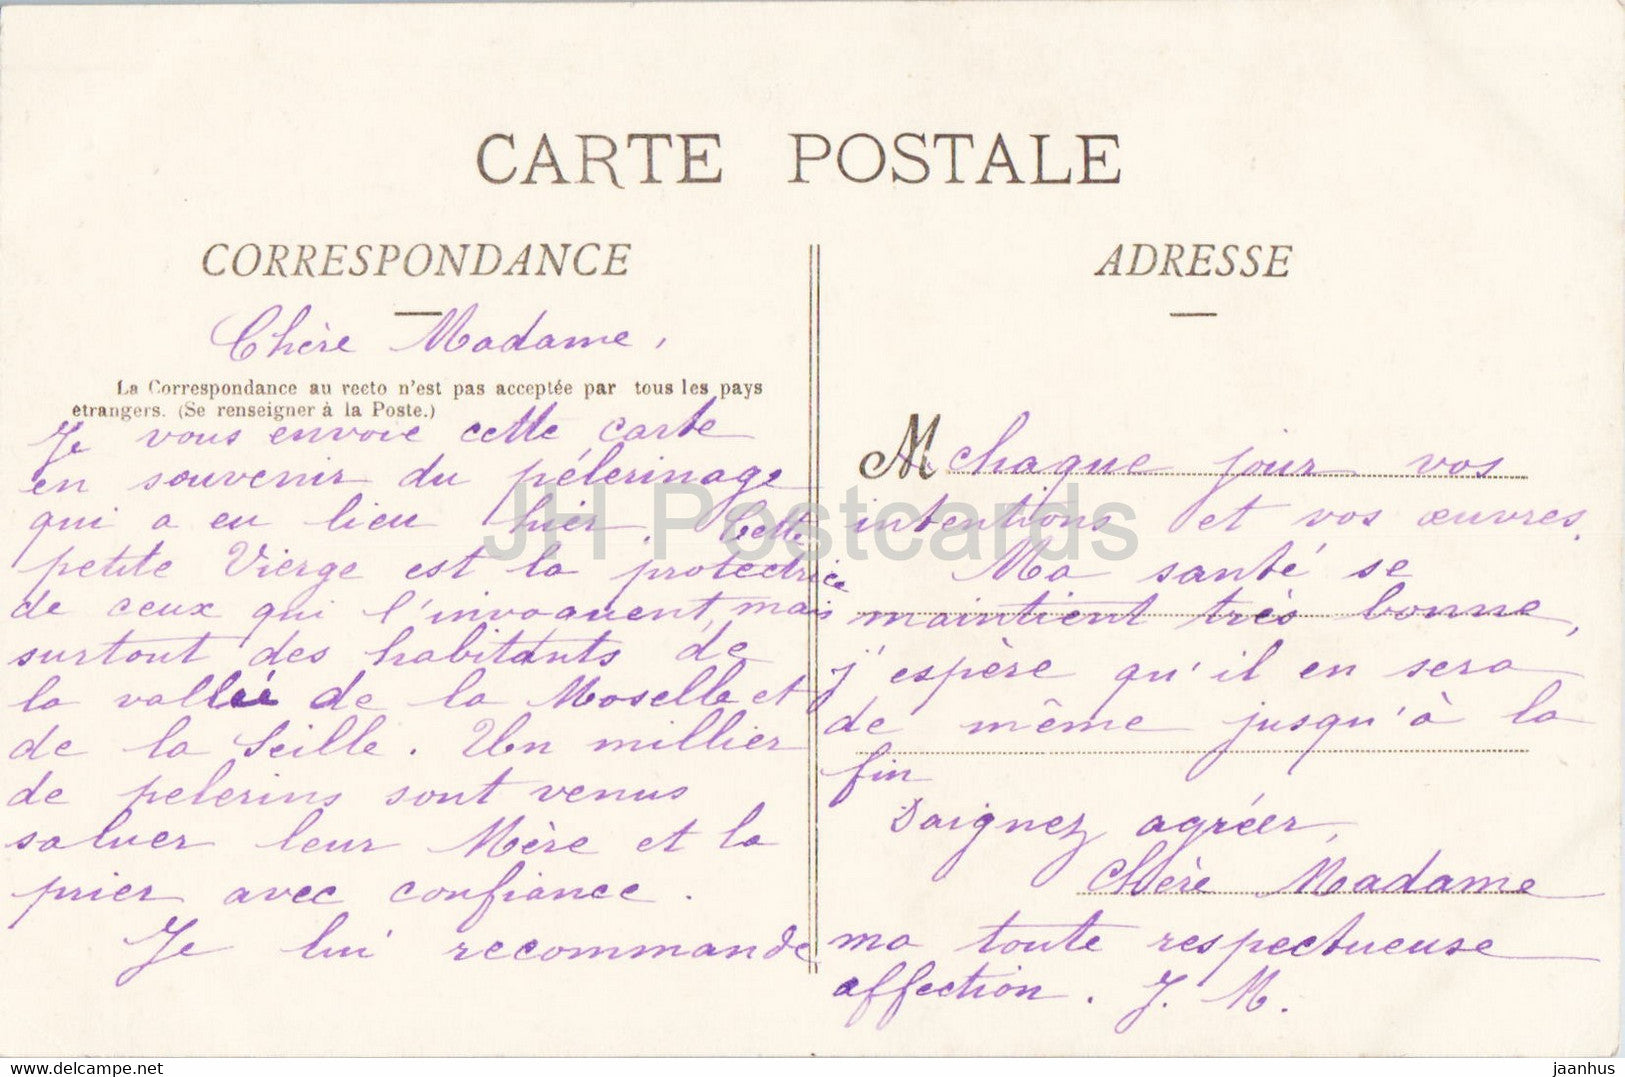 CARTE POSTALE
CORRESPONDANCE
Chère Madame,
La Correspondance au recto n'est pas acceptée par tous les pays
étrangers. (Se renseigner à la Poste.)
Je vous envoie cette carte
en souvenir du pélerinage
qui a eu lieu hier. Cette
petite Vierge est la protectrice
de ceux qui l'invoquent, mais
surtout des habitants de
la vallée de la Moselle et
de la Seille. Un millier
de pelerins sont venus
saluer leur Mère et la
prier avec confiance.
Je lui recommande
ADRESSE
M chaque jour vos
intentions et vos œuvres.
Ma santé se
maintient très bonne,
j'espère qu'il en sera
de même jusqu'à la
fin
Daignez agréer,
Chère Madame
ma toute respectueuse
affection. J. M.
JH Postcards
delcampe.net
jaanhus